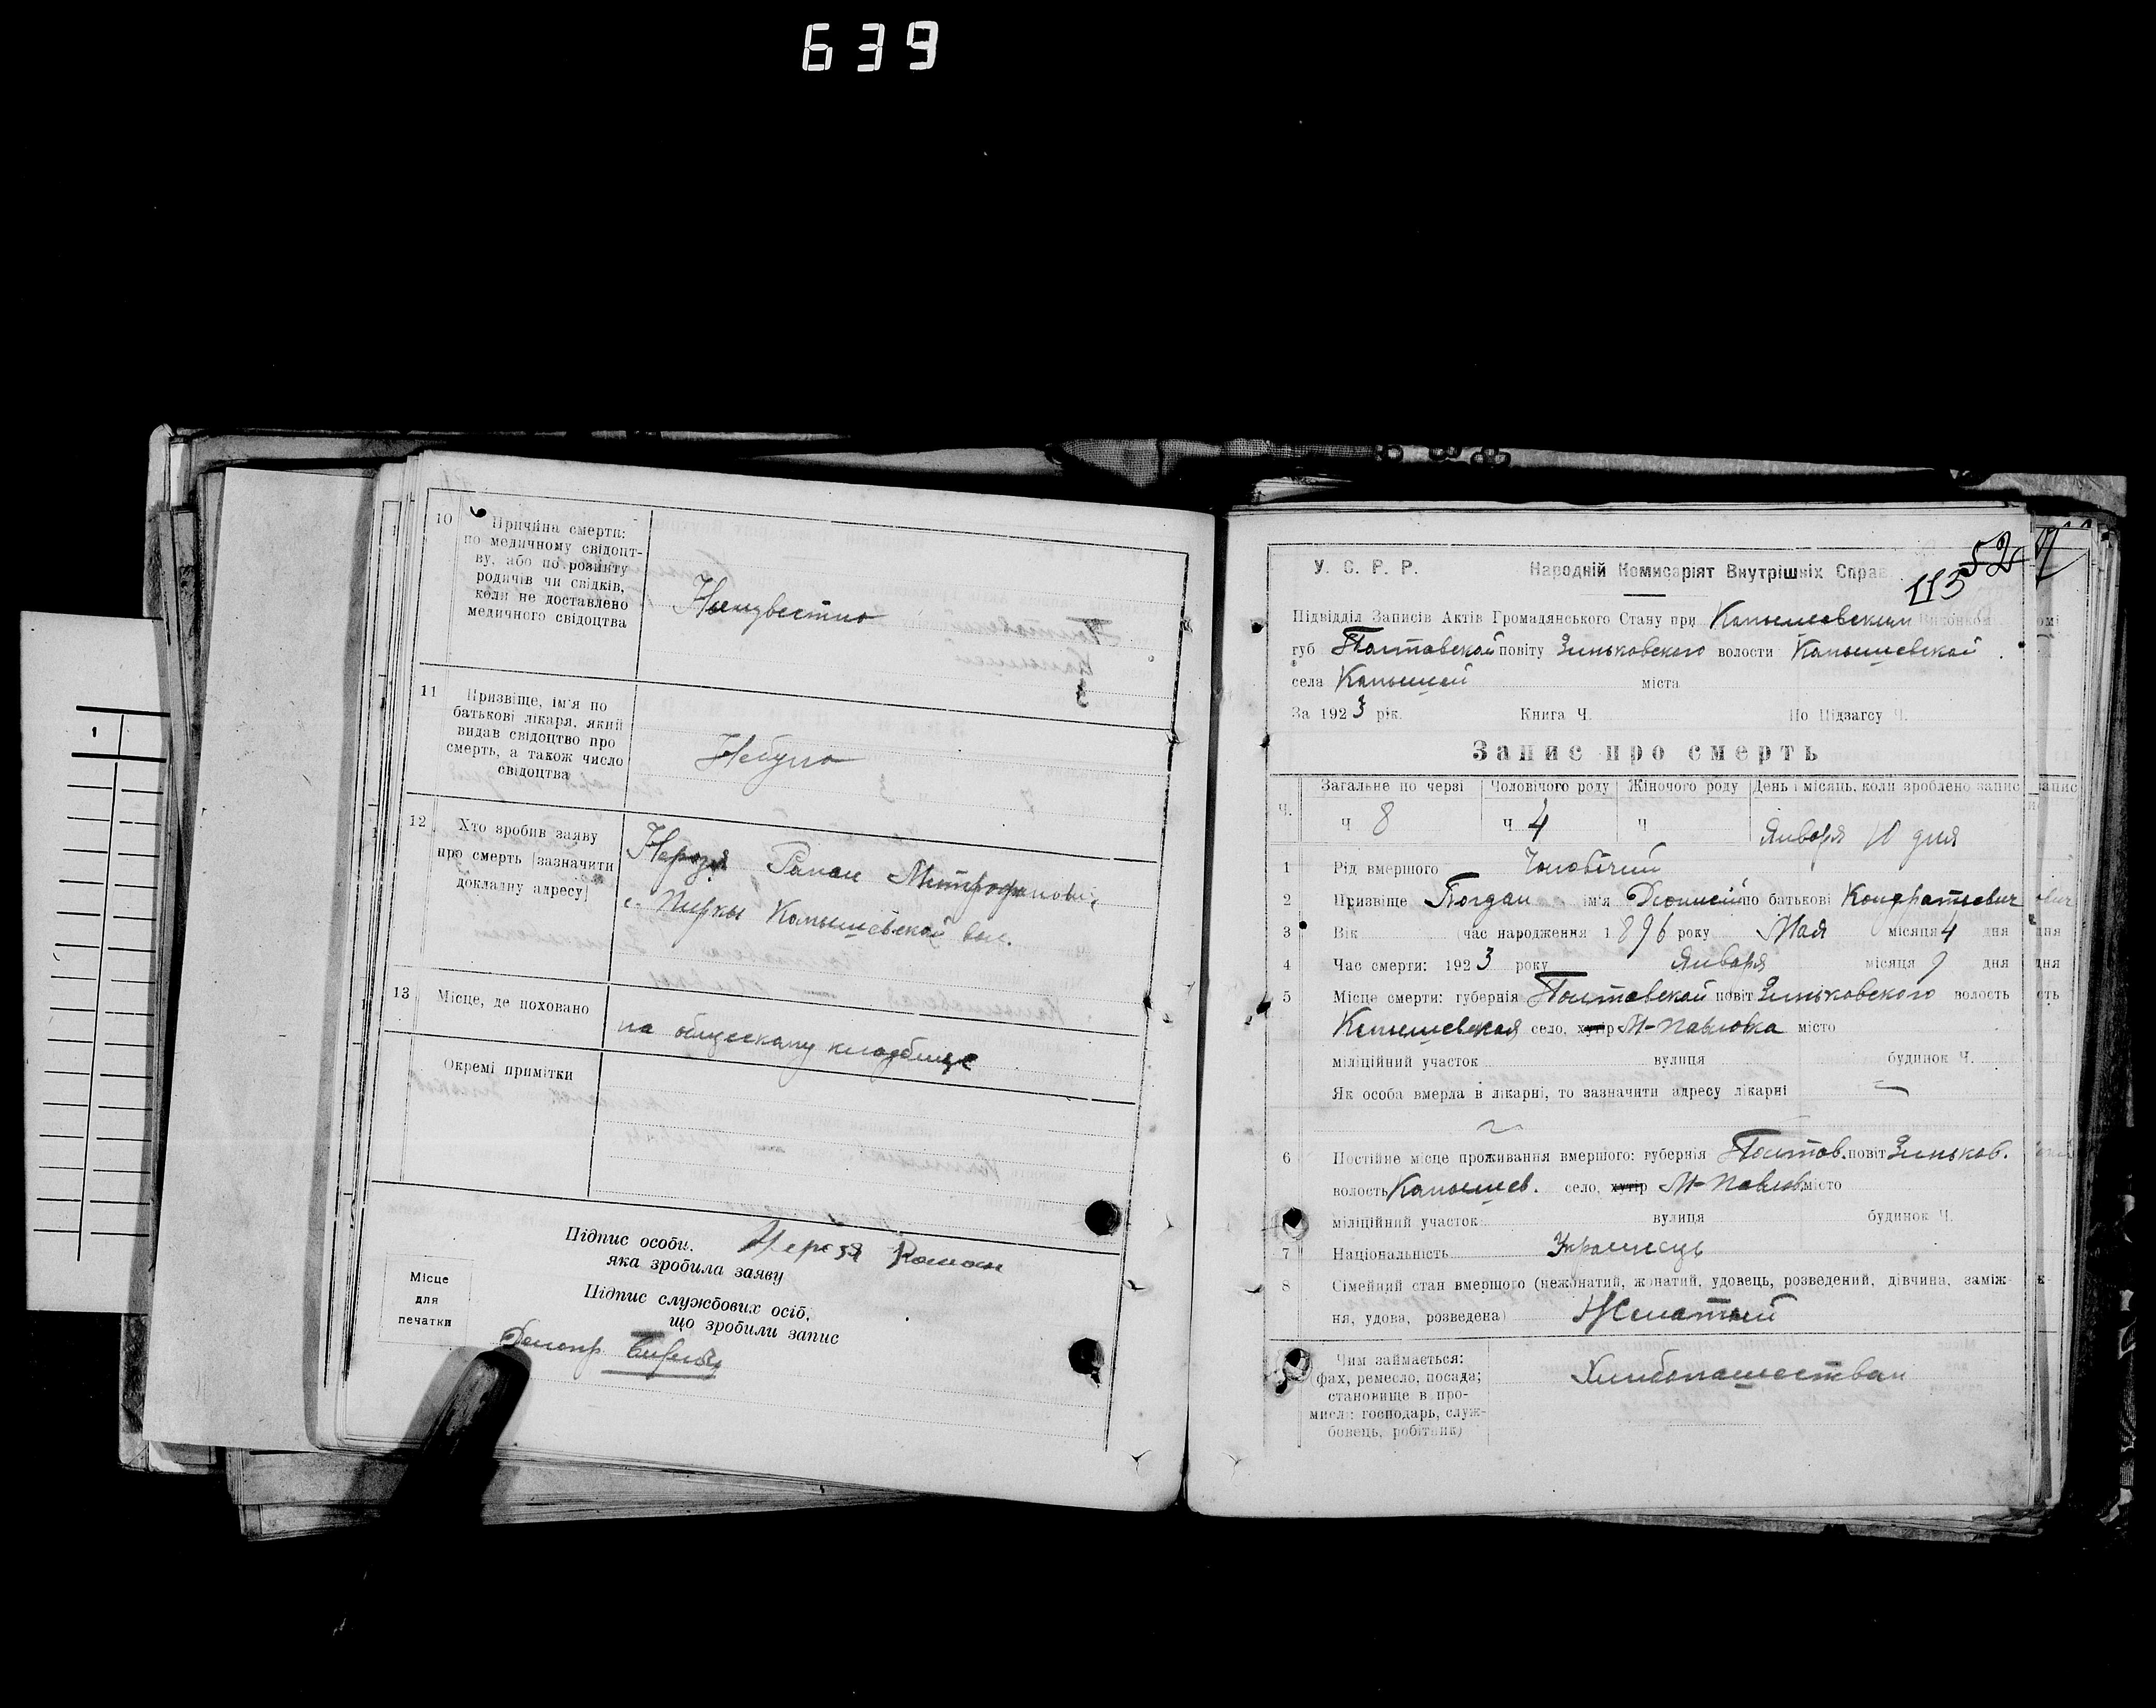 639
10 Причина смерти:
по медичному свідоцт-
ву, або по розпиту
родичів чи свідків,
коли не доставлено
медичного свідоцтва
Неизвестно
11 Призвіще, ім'я по
батькові лікаря, який
видав свідоцтво про
смерть, а також число
свідоцтва
Небуло
12 Хто зробив заяву
про смерть (зазначити
докладну адресу)
Роман Митрофанови
с. Пирки Комышевской вол.
13 Місце, де поховано
на кладбище
Окремі примітки
Підпис особи, Роман
яка зробила заяву
Підпис службових осіб,
що зробили запис
Місце
для
печатки
1
52
115
У. С. Р. Р. Народній Комисаріят Внутрішніх Справ
Підвідділ Записів Актів Громадянського Стану при Комышевским Виконком
губ Полтавской повіту Зиньковского волости Комышевской
села Комышей міста
За 1923 рік. Книга Ч. По Підзагсу Ч.
Запис про смерть
Ч. Загальне по черзі Чоловічого роду Жіночого роду День і місяць, коли зроблено запис
Ч 8 Ч 4 Ч Января 10 дня
1 Рід вмершого Чоловічий
2 Призвіще ім'я Дионисий по батькові Кондратьевич
3 Вік (час народження 1896 року Мая місяця 4 дня
4 Час смерти: 1923 року Января місяця 9 дня
5 Місце смерти: губернія Полтавской повіт Зиньковского волость
Комышевская село, хутір М-Павловка місто
міліційний участок вулиця будинок Ч.
Як особа вмерла в лікарні, то зазначити адресу лікарні
6 Постійне місце проживання вмершого: губернія Полтов. повіт Зиньков.
волость Комышев. село, хутір М-Павлов. місто
міліційний участок вулиця будинок Ч.
7 Національність Украинець
8 Сімейний стан вмершого (нежонатий, жонатий, удовець, розведений, дівчина, заміж-
ня, удова, розведена) Жонатый
Чим займається:
(фах, ремесло, посада;
становище в про-
мислі: господарь, служ-
бовець, робітник)
Хлибопашеством